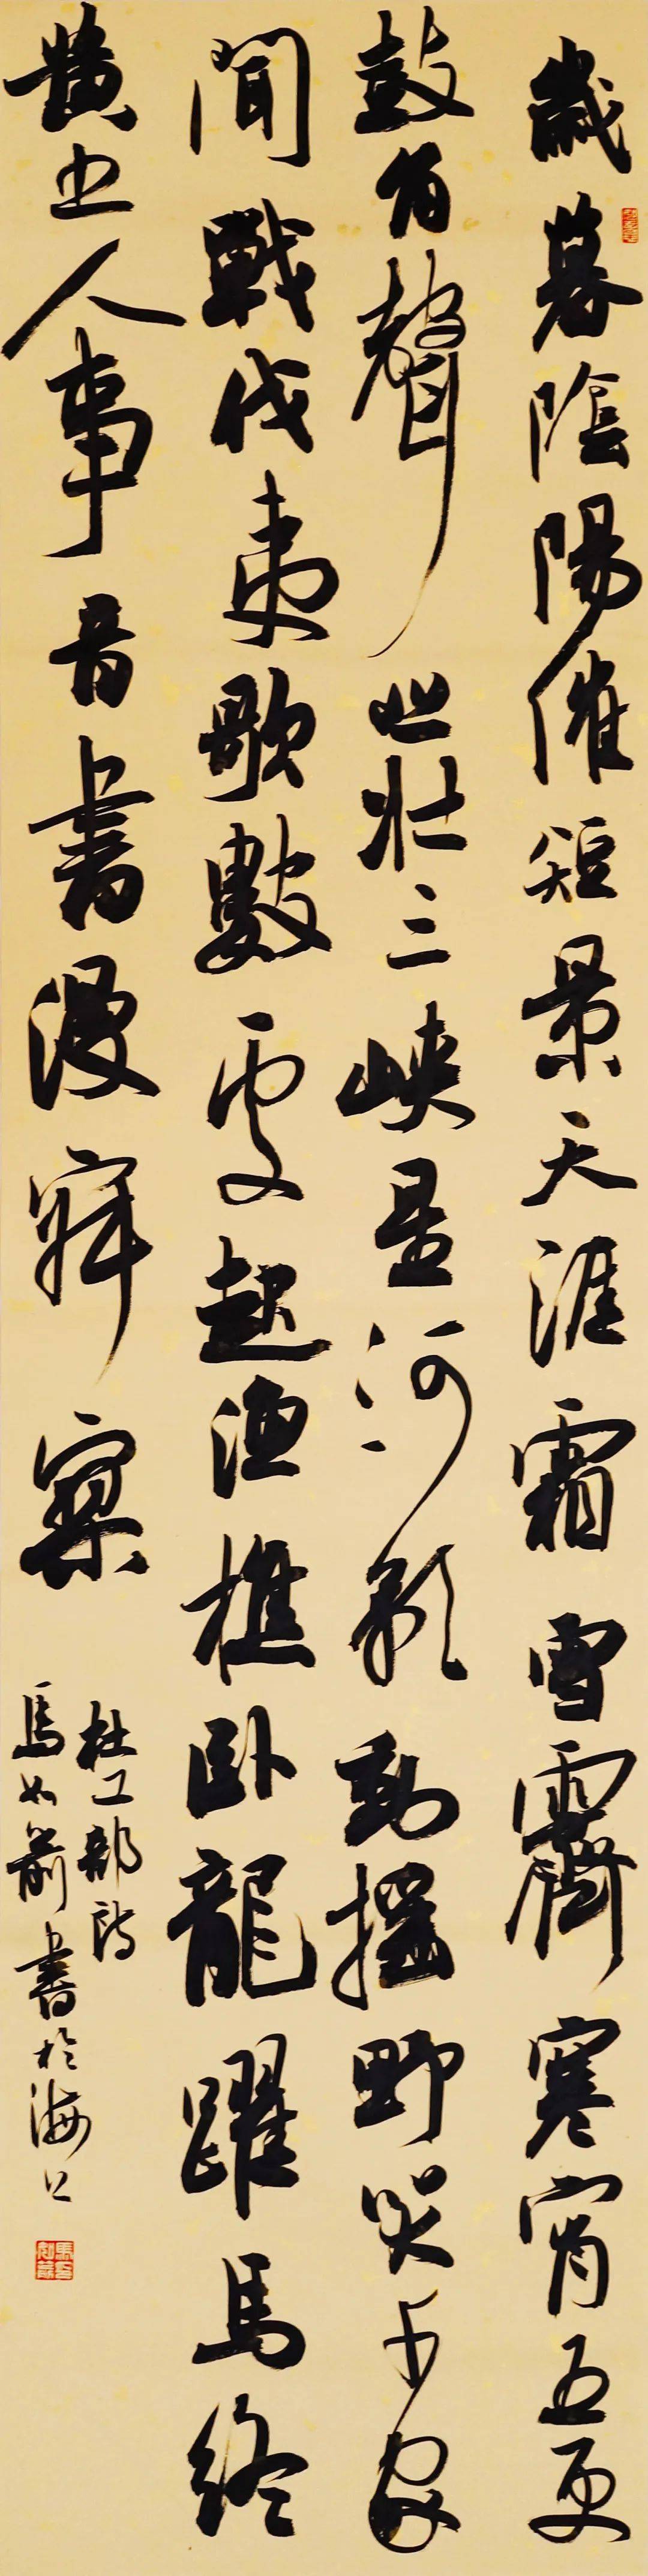 歲暮陰陽催短景天涯霜雪霽寒宵五更
鼓角聲悲壯三峽星河影動搖野哭千家
聞戰伐夷歌數處起漁樵臥龍躍馬終
黃土人事音書漫寂寥
杜工部詩
馬如箭書於海